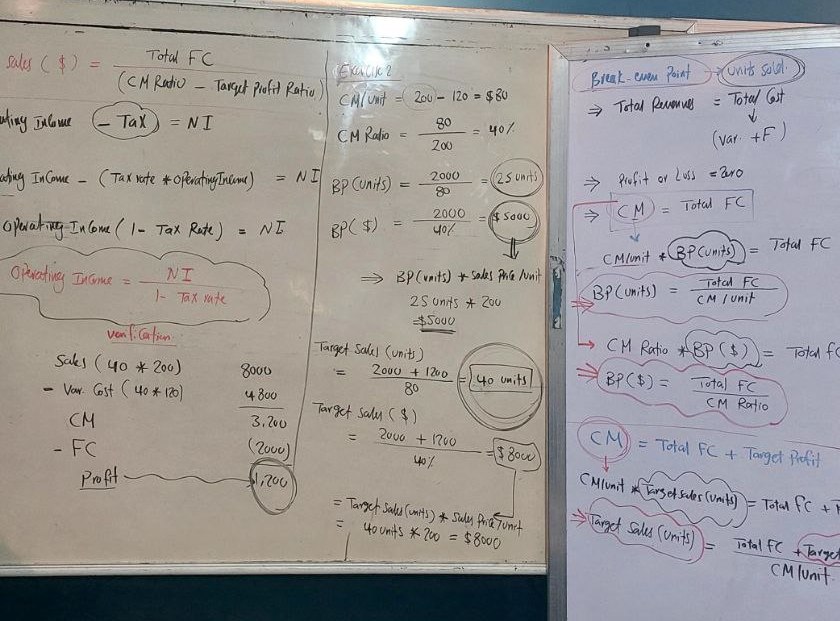 Sales ($) = Total FC
(CM Ratio - Target Profit Ratio)
ating Income - Tax = NI
ating InCome - (Tax rate * operating Income) = NI
Operating InCome (1 - Tax Rate) = NI
Operating Income = NI
1 - Tax rate
verification
Sales (40 * 200) 8000
- Var. Cost (40 * 120) 4800
CM 3,200
- FC (2000)
Profit 1,200
Exercise 2
CM/unit = 200 - 120 = $80
CM Ratio = 80
200
= 40%
BP(units) = 2000
80
= 25 units
BP($) = 2000
40%
= $5000
⇒ BP(units) * Sales Price/unit
25 units * 200
= $5000
Target Sales (units)
= 2000 + 1200
80
= 40 units
Target Sales ($)
= 2000 + 1200
40%
= $8000
= Target Sales (units) * Sales Price/unit
= 40 units * 200 = $8000
Break-even Point → units sold
⇒ Total Revenues = Total Cost
(var. + F)
⇒ Profit or Loss = Zero
⇒ CM = Total FC
CM/unit * BP(units) = Total FC
⇒ BP(units) = Total FC
CM/unit
CM Ratio * BP($) = Total FC
⇒ BP($) = Total FC
CM Ratio
CM = Total FC + Target Profit
CM/unit * Target Sales (units) = Total FC +
⇒ Target Sales (units) = Total FC + Target
CM/unit